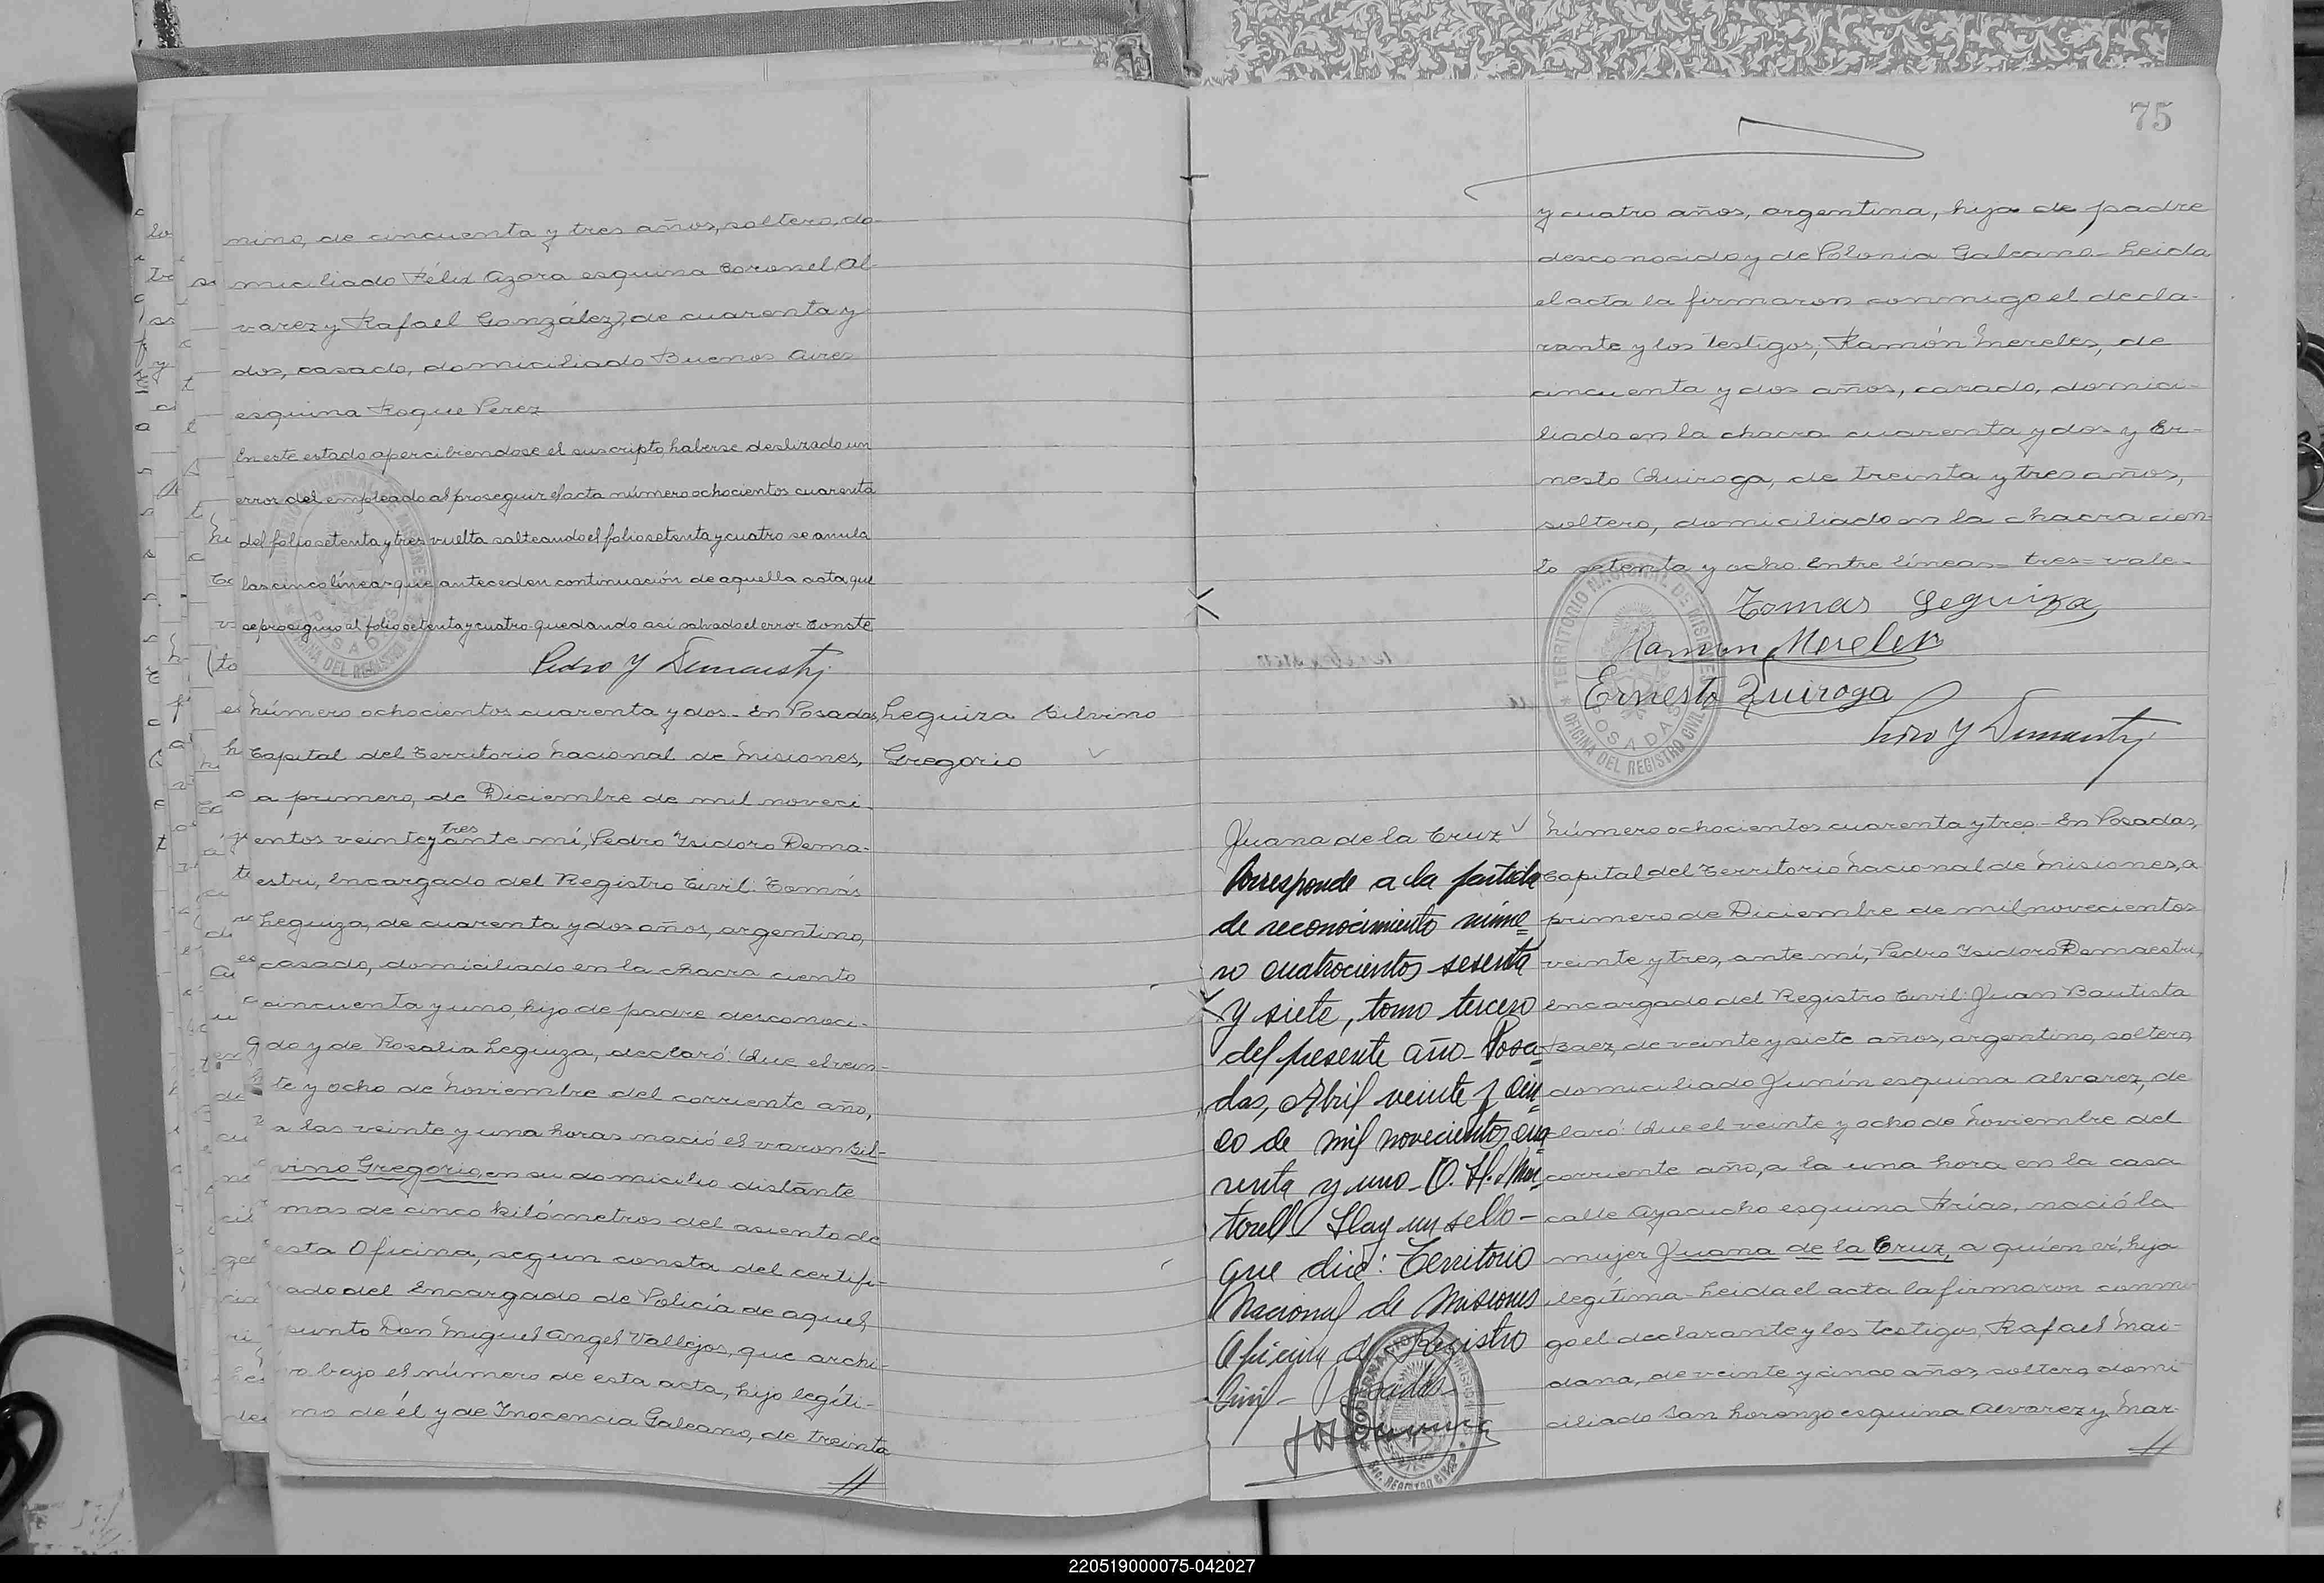 nino, de cincuenta y tres años, soltero, do-
miciliado Félix Azara esquina Coronel Al-
varez y Rafael González, de cuarenta y
dos, casado, domiciliado Buenos Aires
esquina Roque Perez
En este estado apercibiendose el suscripto, haberse deslizado un
error del empleado al proseguir el acta número ochocientos cuarenta
del folio setenta y tres vuelta salteando el folio setenta y cuatro se anula
las cinco líneas que anteceden continuación de aquella acta, que
se prosiguio al folio setenta y cuatro quedando así salvado el error Conste
Pedro Y Demaestri
Número ochocientos cuarenta y dos - En Posadas,
Leguiza Silvino
Capital del Territorio Nacional de Misiones,
Gregorio
a primero, de Diciembre de mil noveci-
tres
entos veinte y ante mí, Pedro Isidoro Dema-
estri, Encargado del Registro Civil: Tomás
Leguiza, de cuarenta y dos años, argentino,
casado, domiciliado en la chacra ciento
cincuenta y uno, hijo de padre desconoci-
do y de Rosalia Leguiza, declaró: Que el vein-
te y ocho de Noviembre del corriente año,
a las veinte y una horas nació el varon Sil-
vino Gregorio, en su domicilio distante
mas de cinco kilómetros del asiento de
esta Oficina, segun consta del certifi-
cado del Encargado de Policía de aquel
punto Don Miguel Angel Vallejos, que archi-
vo bajo el número de esta acta, hijo legíti-
mo de él y de Inocencia Galeano, de treinta
//
75
y cuatro años, argentina, hija de padre
desconocido y de Polonia Galeano - Leida
el acta la firmaron conmigo el decla-
rante y los testigos; Ramón Mereles, de
cincuenta y dos años, casado, domici-
liado en la chacra cuarenta y dos y Er-
nesto Quiroga, de treinta y tres años,
soltero, domiciliado en la chacra cien-
to setenta y ocho Entre líneas = tres = vale -
Tomas Leguiza
Ramon Mereles
Ernesto Quiroga
Pedro Y Demaestri
TERRITORIO NACIONAL DE MISIONES
POSADAS
OFICINA DEL REGISTRO CIVIL
Juana de la Cruz
Corresponde a la partida
de reconocimiento núme=
ro cuatrocientos sesenta
y siete, tomo tercero
del presente año - Posa=
das, Abril veinte y cin=
co de mil novecientos cua=
renta y uno - O. H. Mar=
torell - Hay un sello -
que dice: Territorio
Nacional de Misiones
Oficina del Registro
Civil - Posadas
Número ochocientos cuarenta y tres - En Posadas,
Capital del Territorio Nacional de Misiones, a
primero de Diciembre de mil novecientos
veinte y tres, ante mí, Pedro Isidoro Demaestri,
encargado del Registro Civil: Juan Bautista
Baez, de veinte y siete años, argentino, soltero,
domiciliado Junín esquina Alvarez, de
claró: Que el veinte y ocho de Noviembre del
corriente año, a la una hora en la casa
calle Ayacucho esquina Frías, nació la
mujer Juana de la Cruz, a quien ví, hija
legítima - Leida el acta la firmaron conmi
go el declarante y los testigos, Rafael Mai-
dana, de veinte y cinco años, soltero, domi-
ciliado San Lorenzo esquina Alvarez y Mar-
//
220519000075-042027